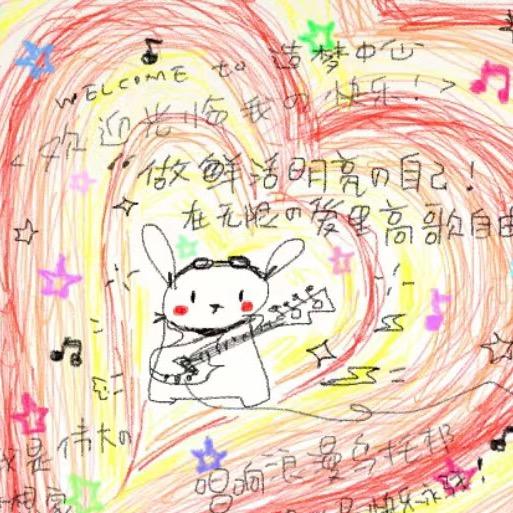 WELCOME to 造梦中心
<欢迎光临我の快乐!>
做鲜活明亮の自己!
在无限の爱里高歌自由
我是伟大の
唱响浪漫乌托邦
想家
是快乐永远!